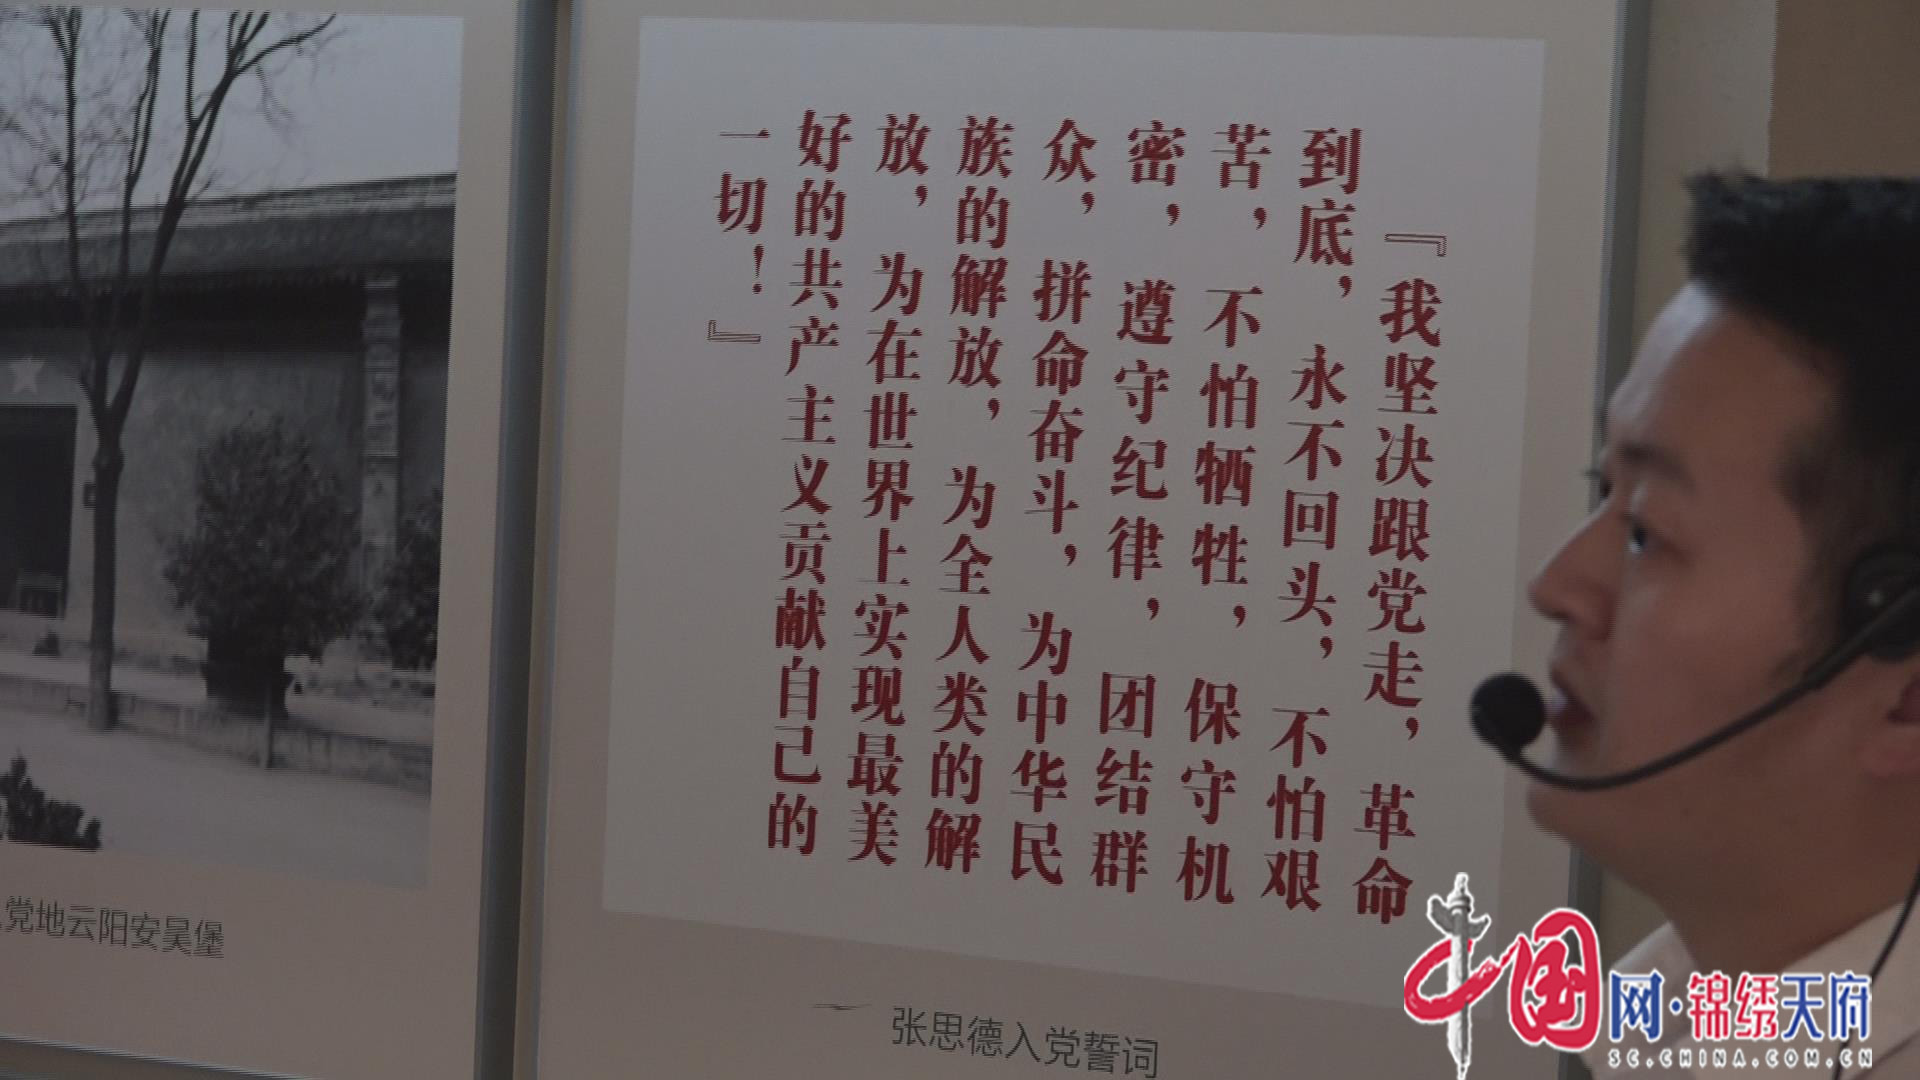 『我坚决跟党走，革命
到底，永不回头，不怕艰
苦，不怕牺牲，保守机
密，遵守纪律，团结群
众，拼命奋斗，为中华民
族的解放，为全人类的解
放，为在世界上实现最美
好的共产主义贡献自己的
一切！』
张思德入党誓词
党地云阳安吴堡
中国网·锦绣天府
SC.CHINA.COM.CN